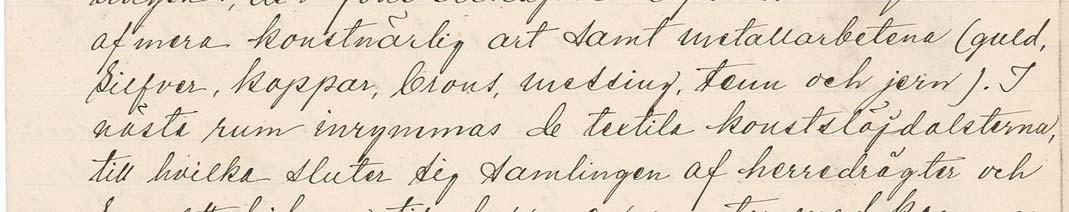 af mera konstnärlig art samt metallarbetena (guld,
silfver, koppar, brons, messing, tenn och jern). I
nästa rum inrymmas de textila konstslöjdalsterna,
till hvilka sluter sig samlingen af herredrägter och